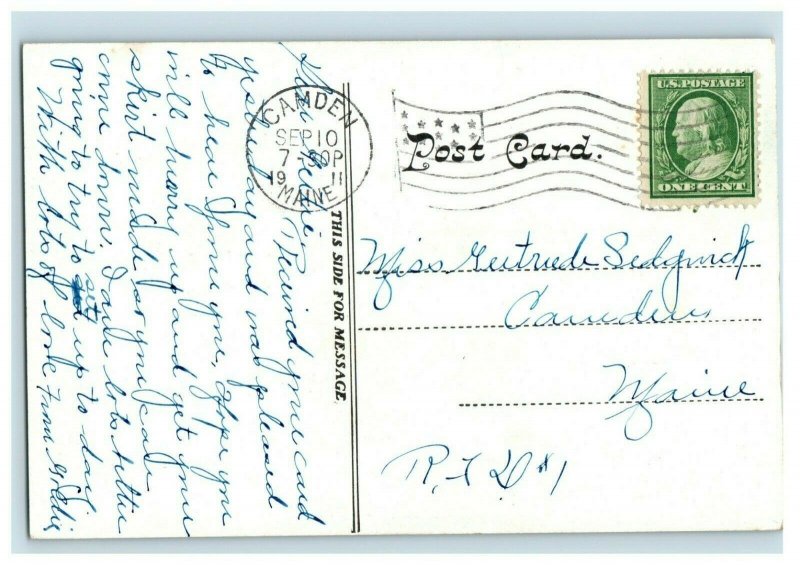 Received your card
yesterday and was pleased
to hear from you. Hope you
will hurry up and get your
skirt made so you can
come down. I am lots better
going to try to set up to day
With lots of love from
THIS SIDE FOR MESSAGE
CAMDEN
SEP 10
7-30P
19 11
MAINE
Post Card.
U.S. POSTAGE
ONE CENT
Miss Gertrude Sedgwick
Camden
Maine
R.F.D #1